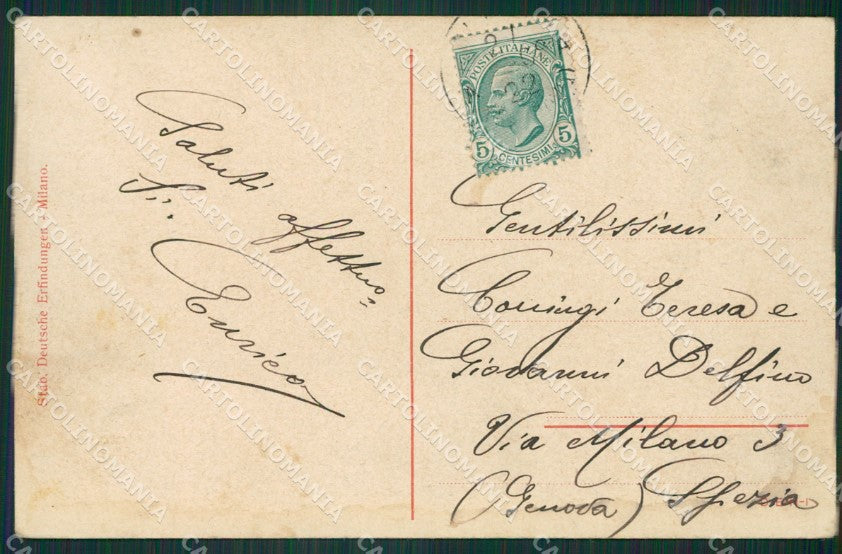 Stab. Deutsche Erfindungen - Milano.
Saluti affettuo=
si.
Enrico
POSTE ITALIANE
5 5
CENTESIMI
Gentilissimi
Coniugi Teresa e
Giovanni Delfino
Via Milano 3
(Genova) Spezia
CARTOLINOMANIA